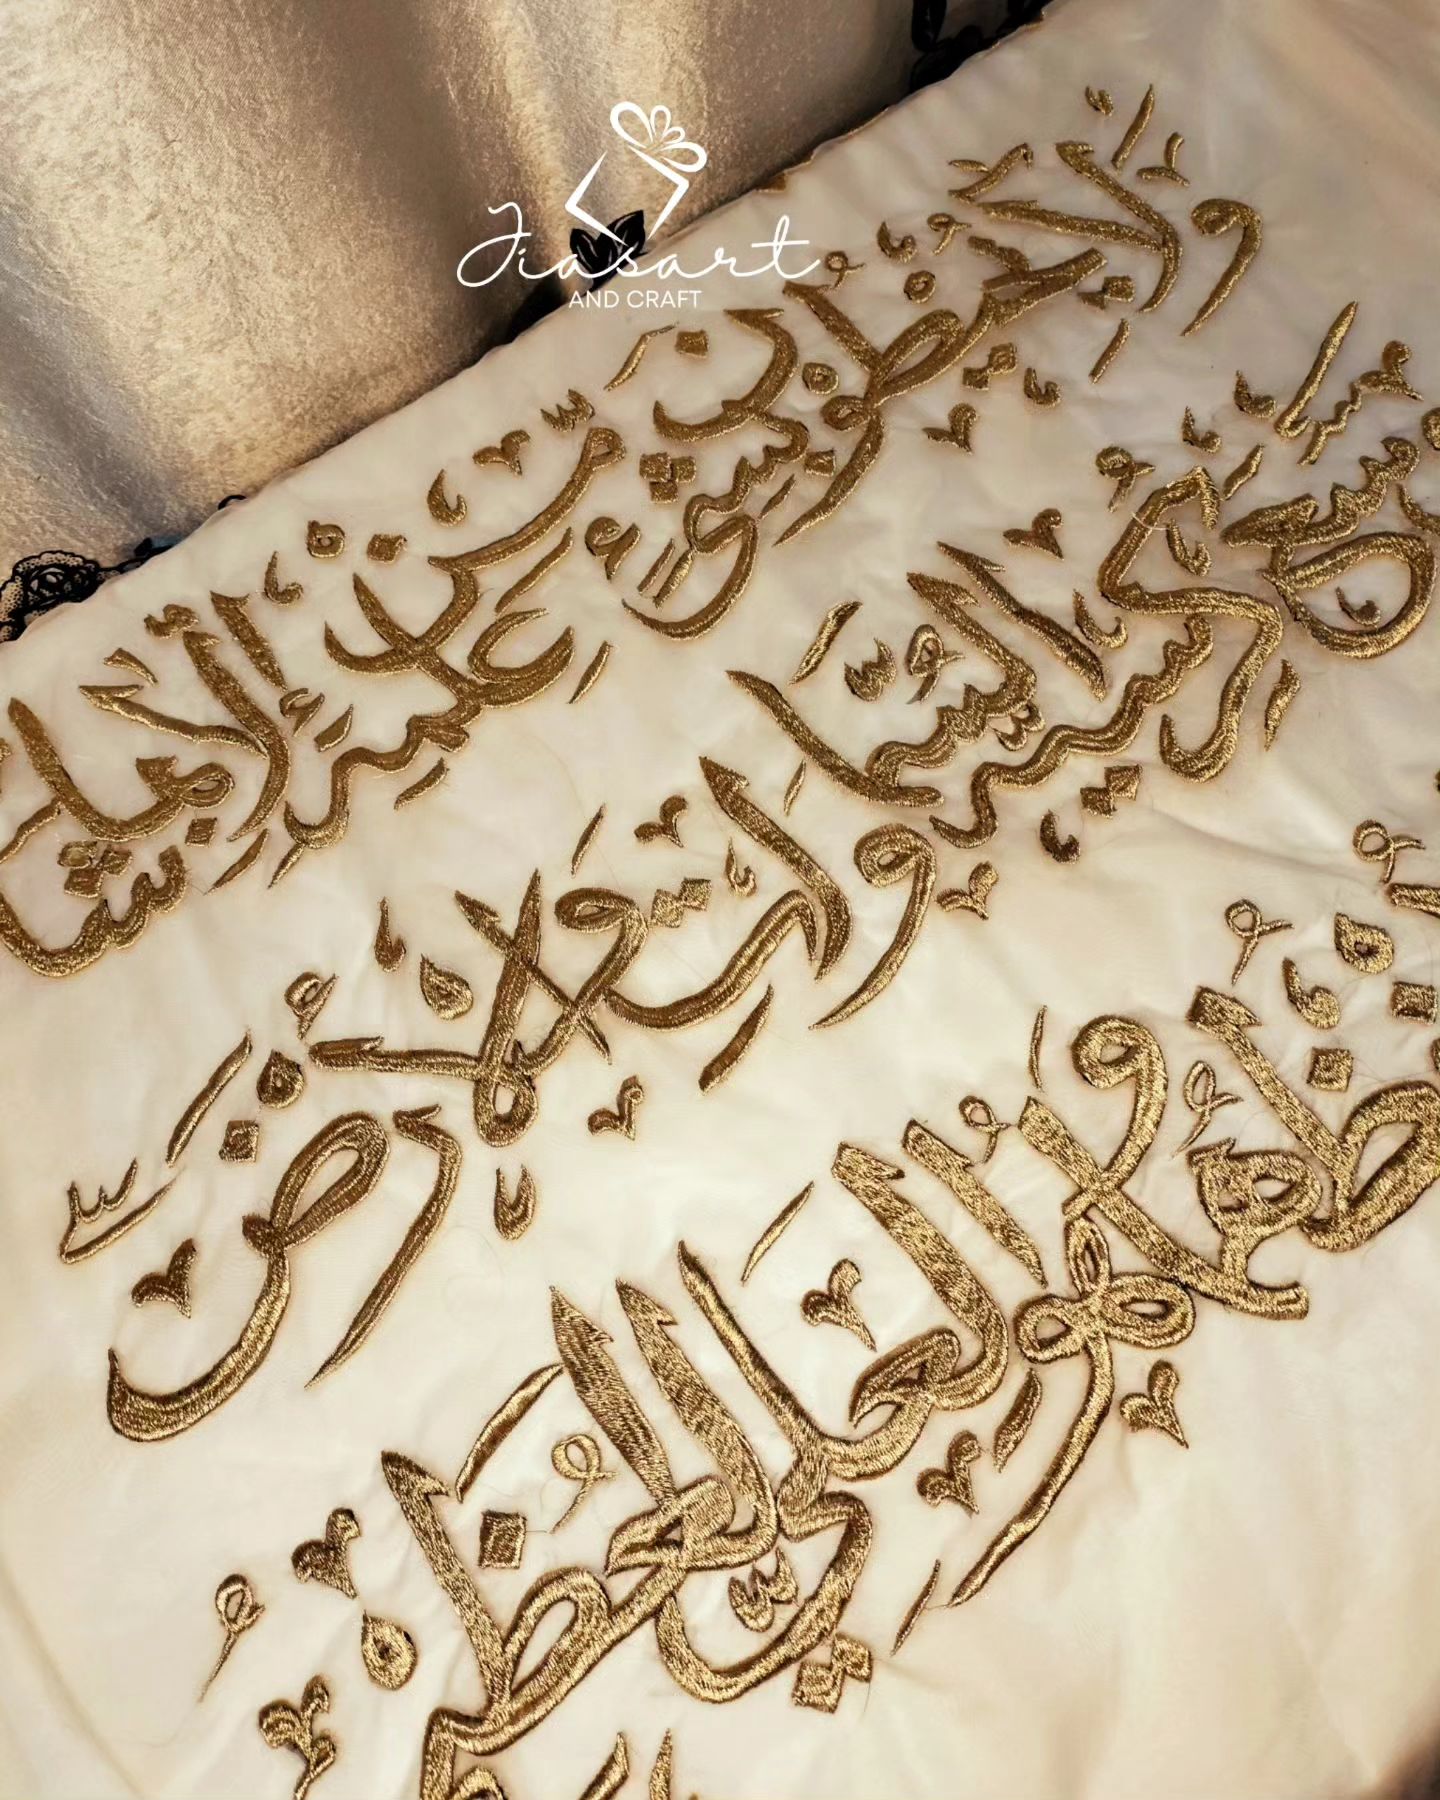 Jiasart
AND CRAFT
وَلَا يُحِيطُونَ بِشَيْءٍ مِّنْ عِلْمِهِ إِلَّا بِمَا شَا
وَسِعَ كُرْسِيُّهُ السَّمَاوَاتِ وَالْأَرْضَ
حِفْظُهُمَا وَهُوَ الْعَلِيُّ الْعَظِيمُ